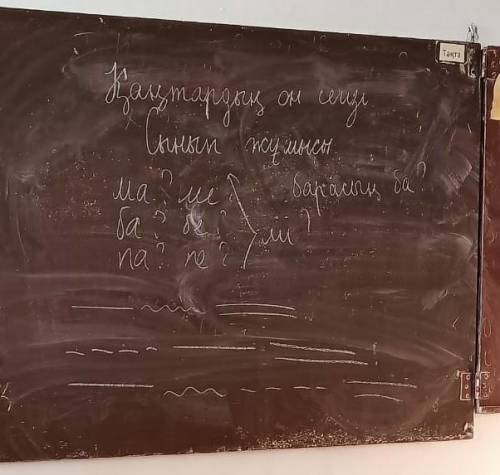 Тақта
Қаңтардың он сегізі
Сынып жұмысы
ма? ме? барасың ба?
ба? бе? ми?
па? пе?